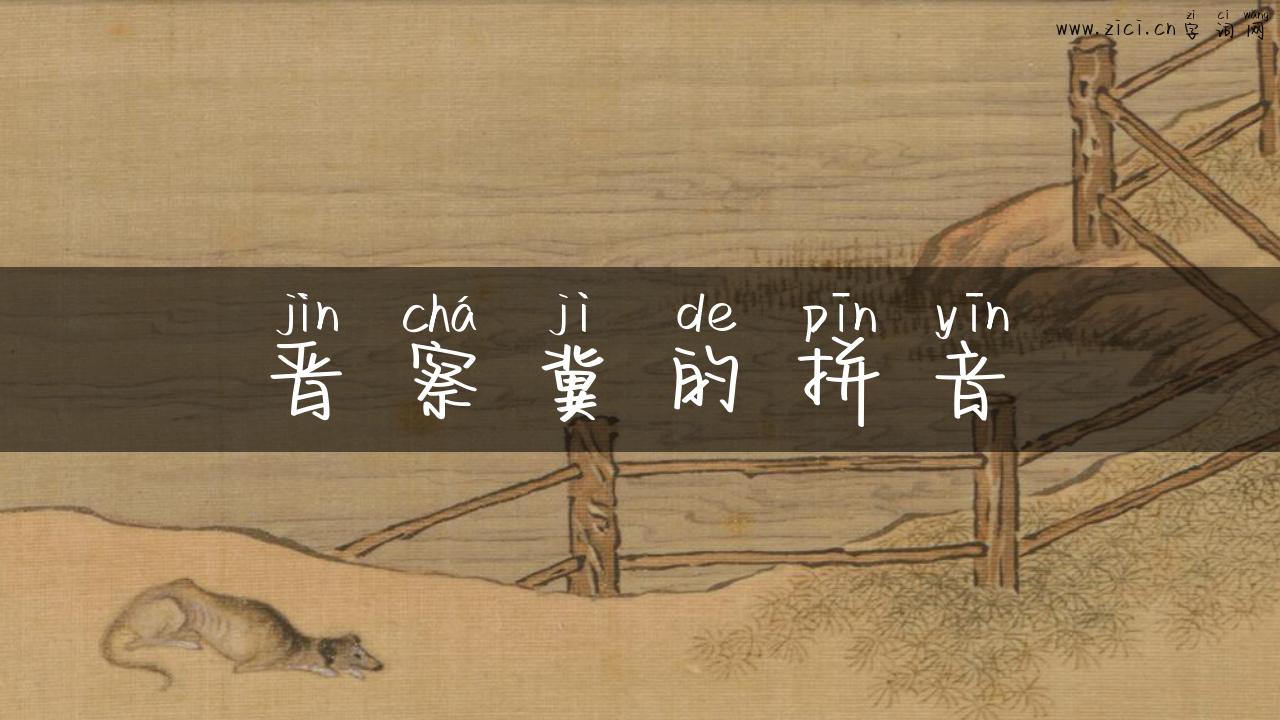 zì cí wǎng
www.zici.cn 字词网
jìn chá jì de pīn yīn
晋察冀的拼音